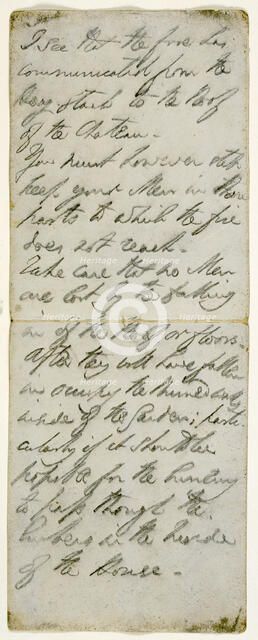 I see that the fire has
communicated from the
Hay Stack to the Roof
of the Chateau.
You must however still
keep your Men in those
parts to which the fire
does not reach.
Take care that no Men
are lost by the falling
in of the Roof or floors.
After they will have fallen
in occupy the
inside of the Garden; parti
cularly if it should be
possible for the Enemy
to pass through the
Embers in the Inside
of the House.
Heritage
Images